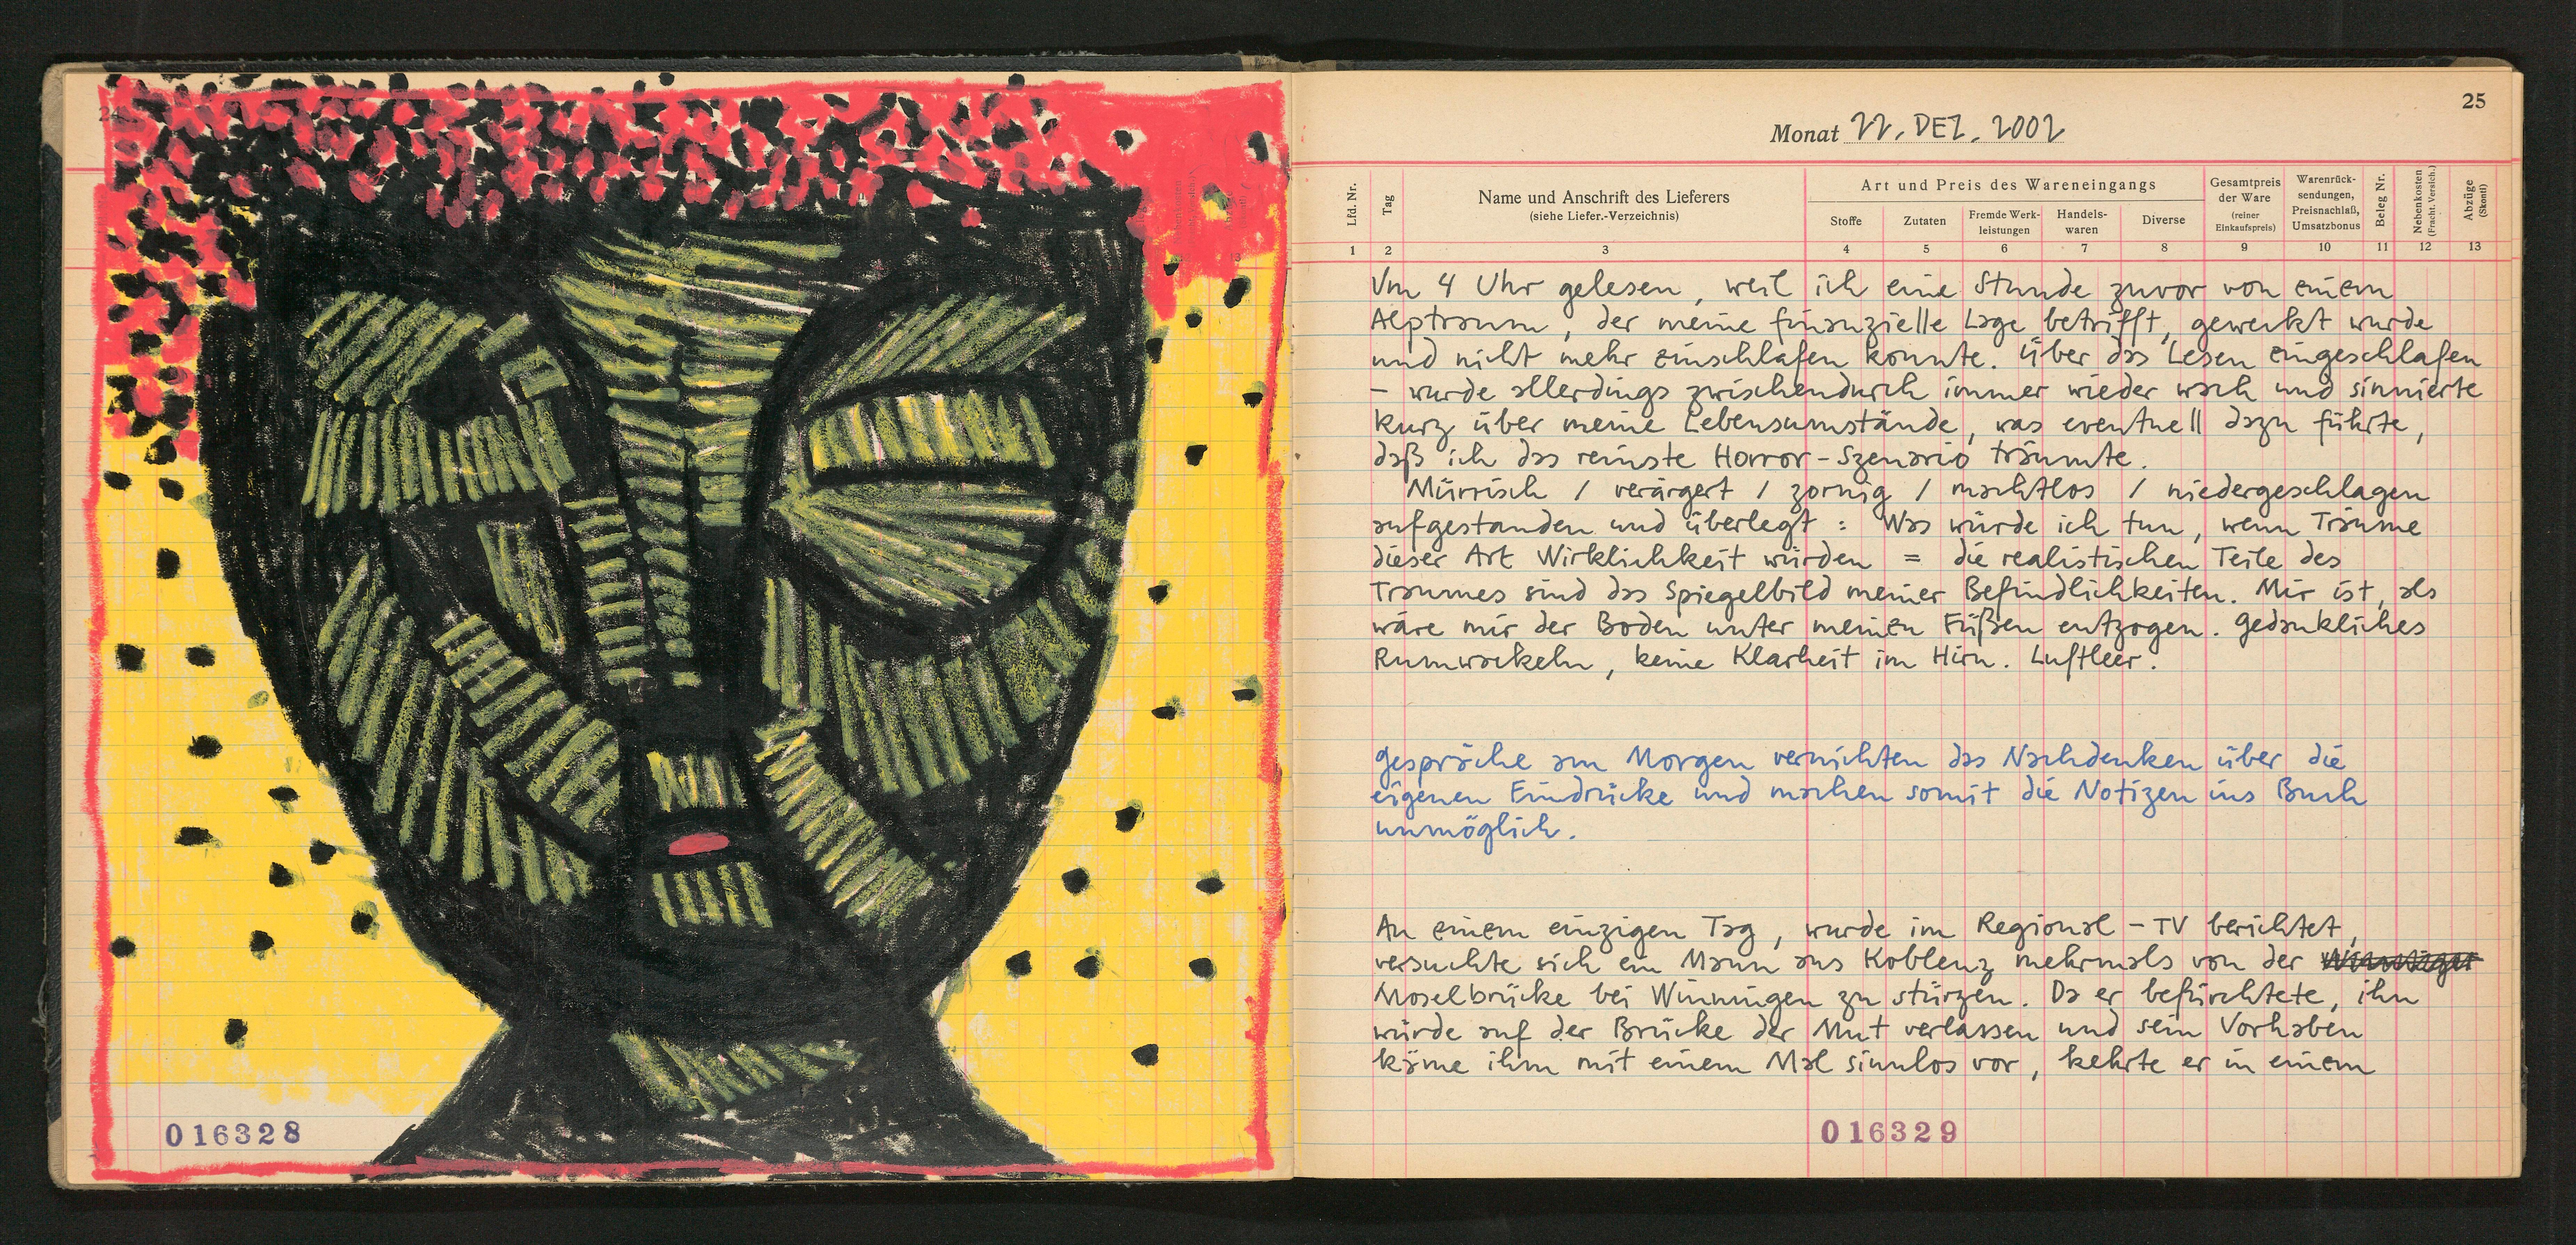 016328
25
Monat 22. DEZ. 2002
Lfd. Nr.
Tag
Name und Anschrift des Lieferers
(siehe Liefer.-Verzeichnis)
Art und Preis des Wareneingangs
Stoffe
Zutaten
Fremde Werk-
leistungen
Handels-
waren
Diverse
Gesamtpreis
der Ware
(reiner
Einkaufspreis)
Warenrück-
sendungen,
Preisnachlaß,
Umsatzbonus
Beleg Nr.
Nebenkosten
(Fracht. Versich.)
Abzüge
(Skonti)
1 2 3 4 5 6 7 8 9 10 11 12 13
Um 4 Uhr gelesen, weil ich eine Stunde zuvor von einem
Alptraum, der meine finanzielle Lage betrifft, geweckt wurde
und nicht mehr einschlafen konnte. Über das Lesen eingeschlafen
– wurde allerdings zwischendurch immer wieder wach und sinnierte
kurz über meine Lebensumstände, was eventuell dazu führte,
daß ich das reinste Horror-Szenario träumte.
Mürrisch / verärgert / zornig / machtlos / niedergeschlagen
aufgestanden und überlegt : Was würde ich tun, wenn Träume
dieser Art Wirklichkeit würden = die realistischen Teile des
Traumes sind das Spiegelbild meiner Befindlichkeiten. Mir ist, als
wäre mir der Boden unter meinen Füßen entzogen. Gedankliches
Rumwackeln, keine Klarheit im Hirn. Luftleer.
Gespräche am Morgen vernichten das Nachdenken über die
eigenen Eindrücke und machen somit die Notizen ins Buch
unmöglich.
An einem einzigen Tag, wurde im Regional-TV berichtet,
versuchte sich ein Mann aus Koblenz mehrmals von der
Moselbrücke bei Winningen zu stürzen. Da er befürchtete, ihn
würde auf der Brücke der Mut verlassen und sein Vorhaben
käme ihm mit einem Mal sinnlos vor, kehrte er in einem
016329